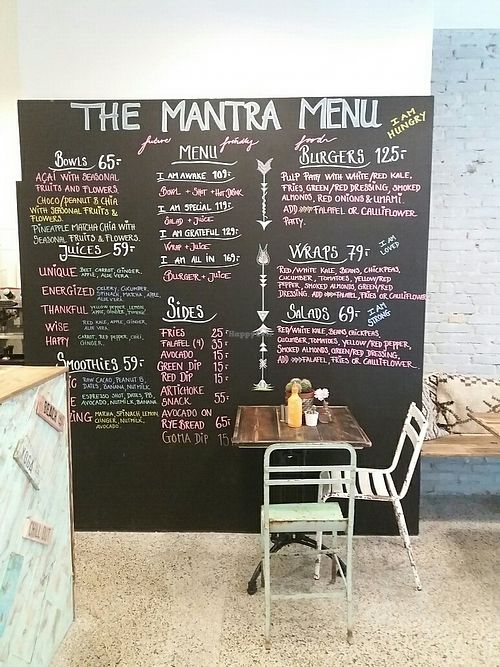 THE MANTRA MENU
I AM
HUNGRY
future friendly food
BOWLS 65:-
AÇAÍ WITH SEASONAL
FRUITS AND FLOWERS.
CHOCO/PEANUT & CHIA
WITH SEASONAL FRUITS &
FLOWERS.
PINEAPPLE MATCHA CHIA WITH
SEASONAL FRUITS & FLOWERS.
JUICES 59:-
UNIQUE BEET, CARROT, GINGER,
APPLE, ALOE VERA.
ENERGIZED CELERY, CUCUMBER,
SPINACH, MATCHA, APPLE,
ALOE VERA.
THANKFUL YELLOW PEPPER, LEMON,
APPLE, GINGER, TUMERIC
WISE RED KALE, APPLE, GINGER,
ALOE VERA.
HAPPY CARROT, RED PEPPER, CHILI,
GINGER.
SMOOTHIES 59:-
RAW CACAO, PEANUT B,
DATES, BANANA, NUTMILK
ESPRESSO SHOT, DATES, PB,
AVOCADO, NUTMILK, BANANA
ZING MATCHA, SPINACH, LEMON,
GINGER, NUTMILK,
AVOCADO.
MENU
I AM AWAKE 109:-
BOWL + SHOT + HOT DRINK
I AM SPECIAL 119:-
SALAD + JUICE
I AM GRATEFUL 129:-
WRAP + JUICE
I AM ALL IN 169:-
BURGER + JUICE
SIDES
FRIES 25:-
FALAFEL (4) 35:-
AVOCADO 15:-
GREEN DIP 15:-
RED DIP 15:-
ARTICHOKE
SNACK 55:-
AVOCADO ON
RYE BREAD 65:-
GOMA DIP 15
BURGERS 125:-
PULP PATTY WITH WHITE/RED KALE,
FRIES, GREEN/RED DRESSING, SMOKED
ALMONDS, RED ONIONS & UMAMI.
ADD FALAFEL OR CAULIFLOWER
PATTY.
WRAPS 79:-
I AM
LOVED
RED/WHITE KALE, BEANS, CHICKPEAS,
CUCUMBER, TOMATOES, YELLOW/RED
PEPPER, SMOKED ALMONDS, GREEN/RED
DRESSING. ADD FALAFEL, FRIES OR CAULIFLOWER
SALADS 69:-
I AM
STRONG
RED/WHITE KALE, BEANS CHICKPEAS
CUCUMBER, TOMATOES, YELLOW/RED PEPPER,
SMOKED ALMONDS, GREEN/RED DRESSING,
ADD FALAFEL, FRIES OR CAULIFLOWER
CHILL OUT